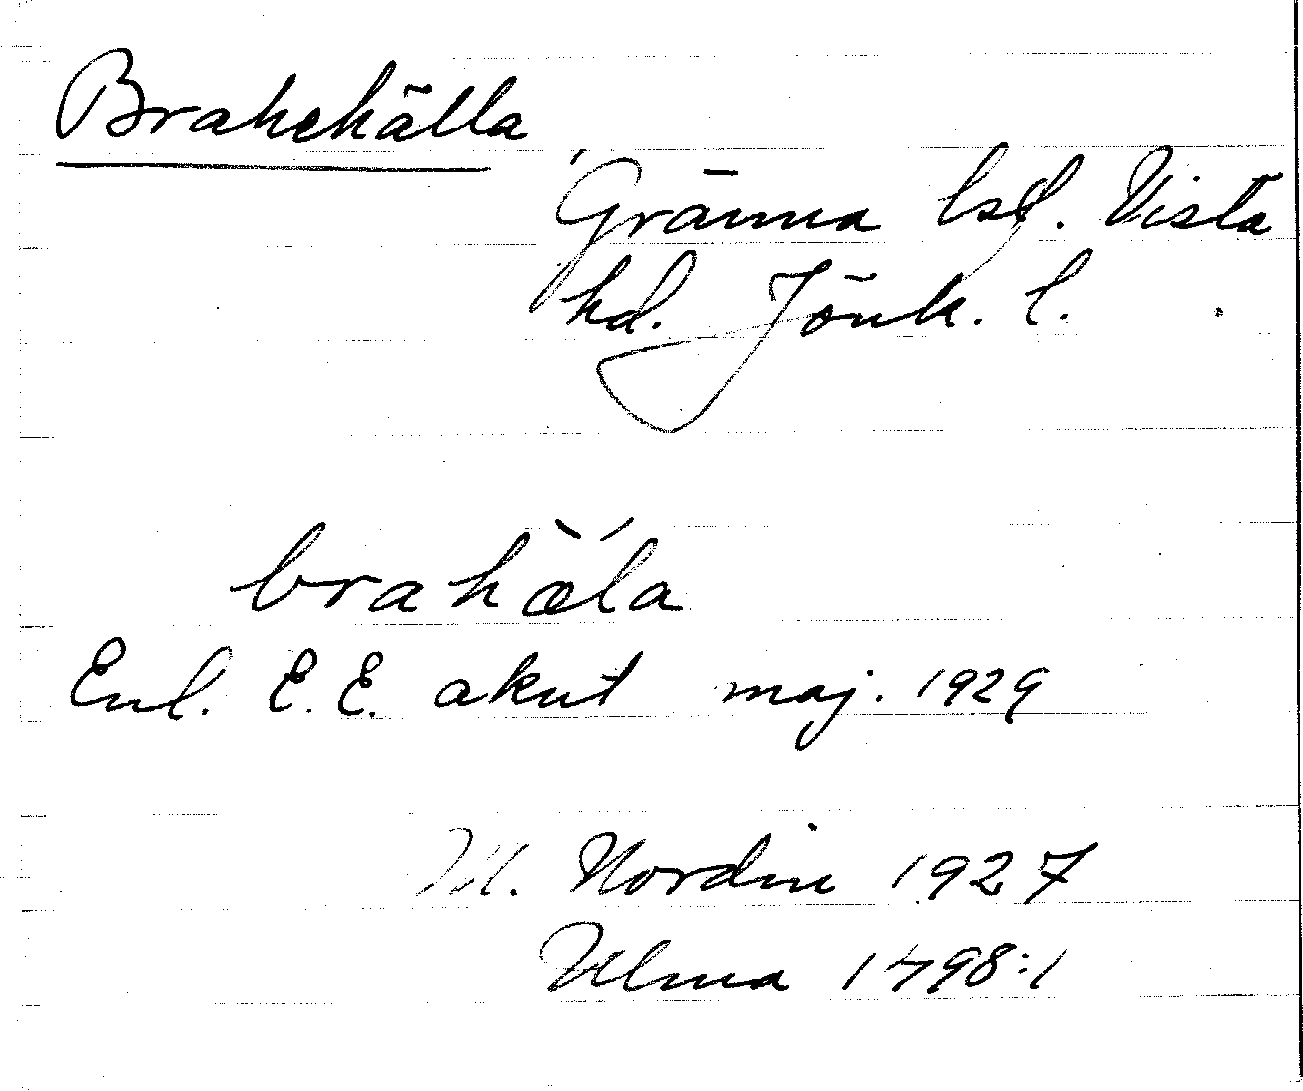 Brahehälla
Gränna lsf. Vista
hd. Jönk. l.
brahæ̀´la
Enl. E. E. akut maj. 1929
M. Nordin 1927
Ulma 1498:1